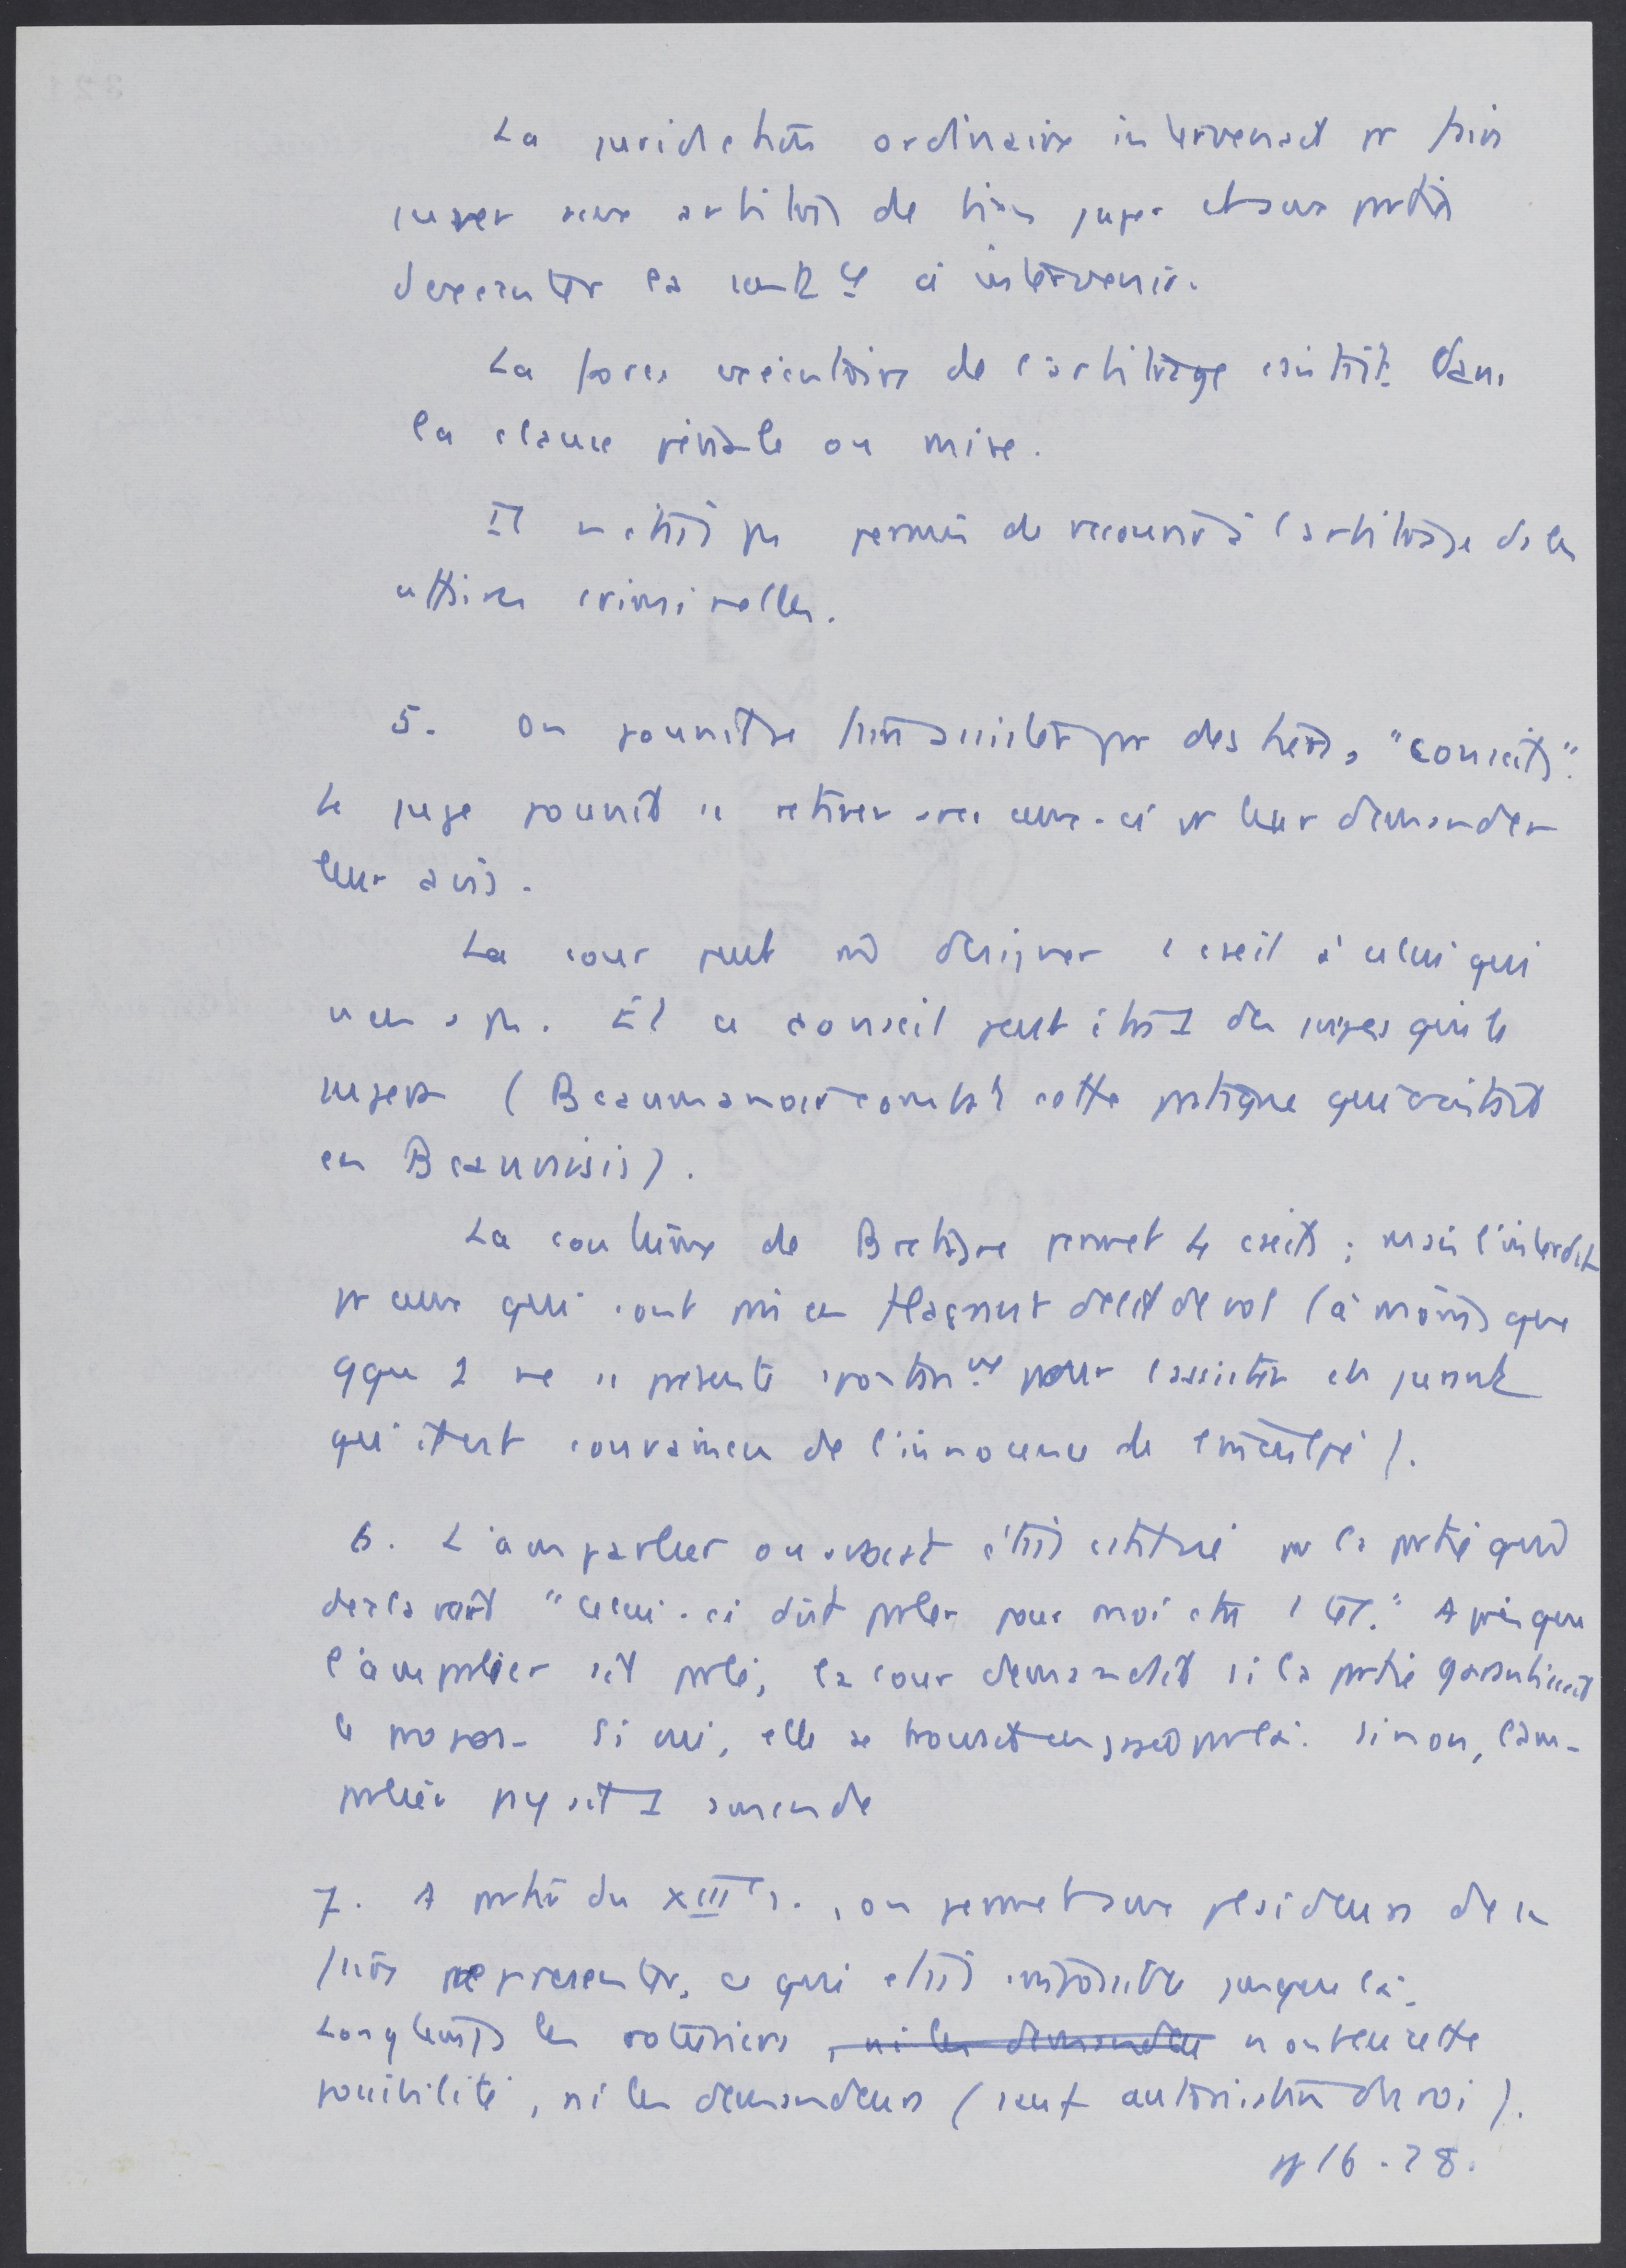 La juridiction ordinaire intervenait pr faire
jurer aux arbitres de bien juger et aux parties
d'executer la sentce à intervenir.
La force executoire de l'arbitrage consistait dans
la clause pénale ou mise.
Il n'était pas permis de recourir à l'arbitrage ds les
affaires criminelles.
5. On pouvait se faire assister par des tiers, "conseils".
Le juge pouvait se retirer avec ceux-ci pr leur demander
leur avis.
La cour peut désigner 1 conseil à celui qui
n'en a pas. Et ce conseil peut être 1 des juges qui le
jugera (Beaumanoir combat cette pratique qui existait
en Beauvaisis).
La coutume de Bretagne permet le conseil ; mais l'interdit
pr ceux qui sont pris en flagrant délit de vol (à moins que
qqu'1 ne se présente pour l'assister en jurant
qu'il est convaincu de l'innocence de l'inculpé).
6. L'amparlier ou avocat était constitué par la partie quand
declarait "celui-ci doit parler pour moi ctre 1 tel." Après que
l'amparlier ait parlé, la cour demandait si la partie garantissait
le propos. Si oui, elle se trouvait parlé. Sinon, l'am-
parlier payait 1 amende
7. A partir du XIIIe s., on permet aux plaideurs de se
faire representer, ce qui était impossible jusque là.
Longtemps les roturiers , ni les demandeu n'ont eu cette
possibilité, ni les demandeurs (sauf autorisation du roi).
pp 16-28.